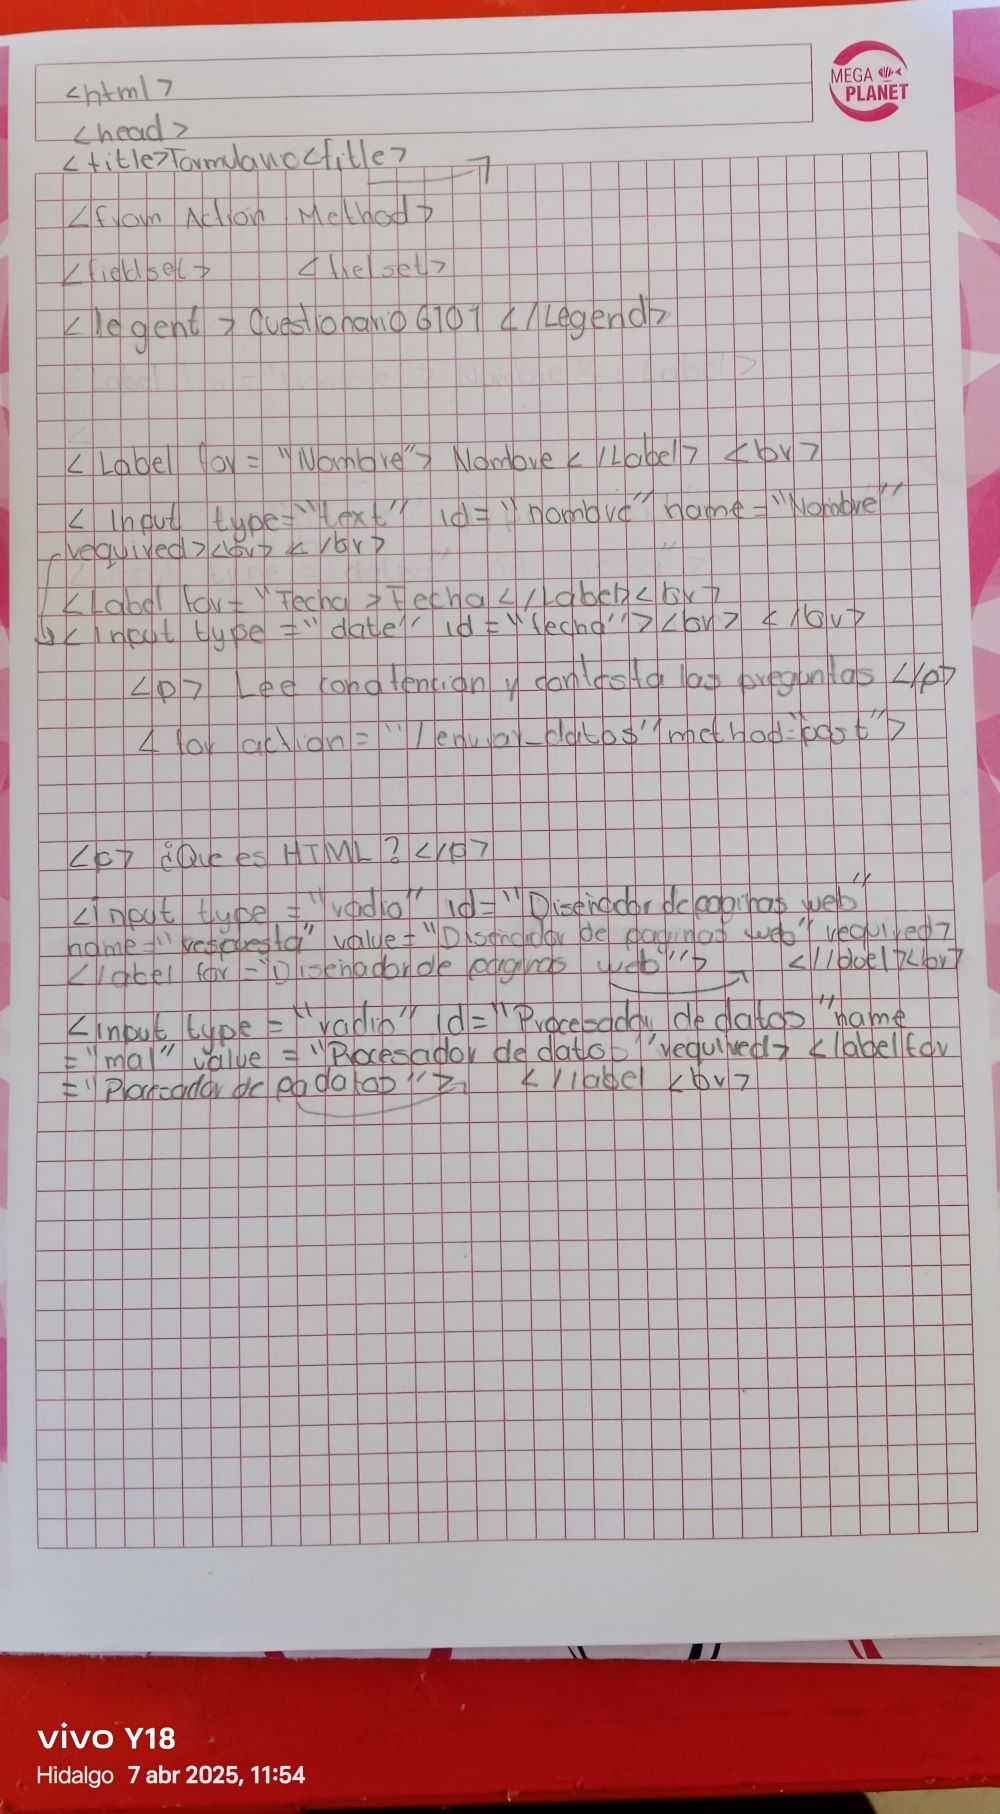 MEGA
PLANET
<html>
<head>
<title>Formulario<title>
<from Action Method>
<fieldset> <fielset>
<legent > Cuestionario 6101 </Legend>
<Label for= "Nombre"> Nombre </Label> <br>
< Input type="text" id="nombre" name="Nombre"
required><br> </br>
<Label for= "Fecha > Fecha </Label><br>
< Input type ="date" id="fecha"><br> </br>
<p> Lee con atencion y contesta las preguntas </p>
< for action= "/enviar_datos" method="post">
<p> ¿Que es HTML? </p>
<input type ="radio" id="Diseñador de paginas web"
name="respuesta" value="Diseñador de paginas web" required>
<label for ="Diseñador de paginas web"> <//label><br>
<Input type ="radio" id="Procesador de datos "name
="mal" value ="Procesador de datos "required> <label for
="Procesador de pa datos "> </label <br>
vivo Y18
Hidalgo 7 abr 2025, 11:54